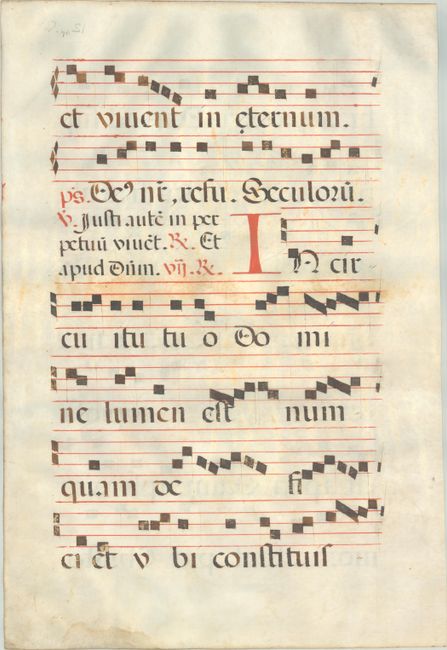 et viuent in ęternum.
ps. De⁹ nr̄, refu. Seculorū.
V. Justi autē in per
petuū viuēt. R. Et
apud Dūm. vij. R.
IN cir
cu itu tu o Do mi
ne lumen est num
quam de fi
ci et v bi constituis